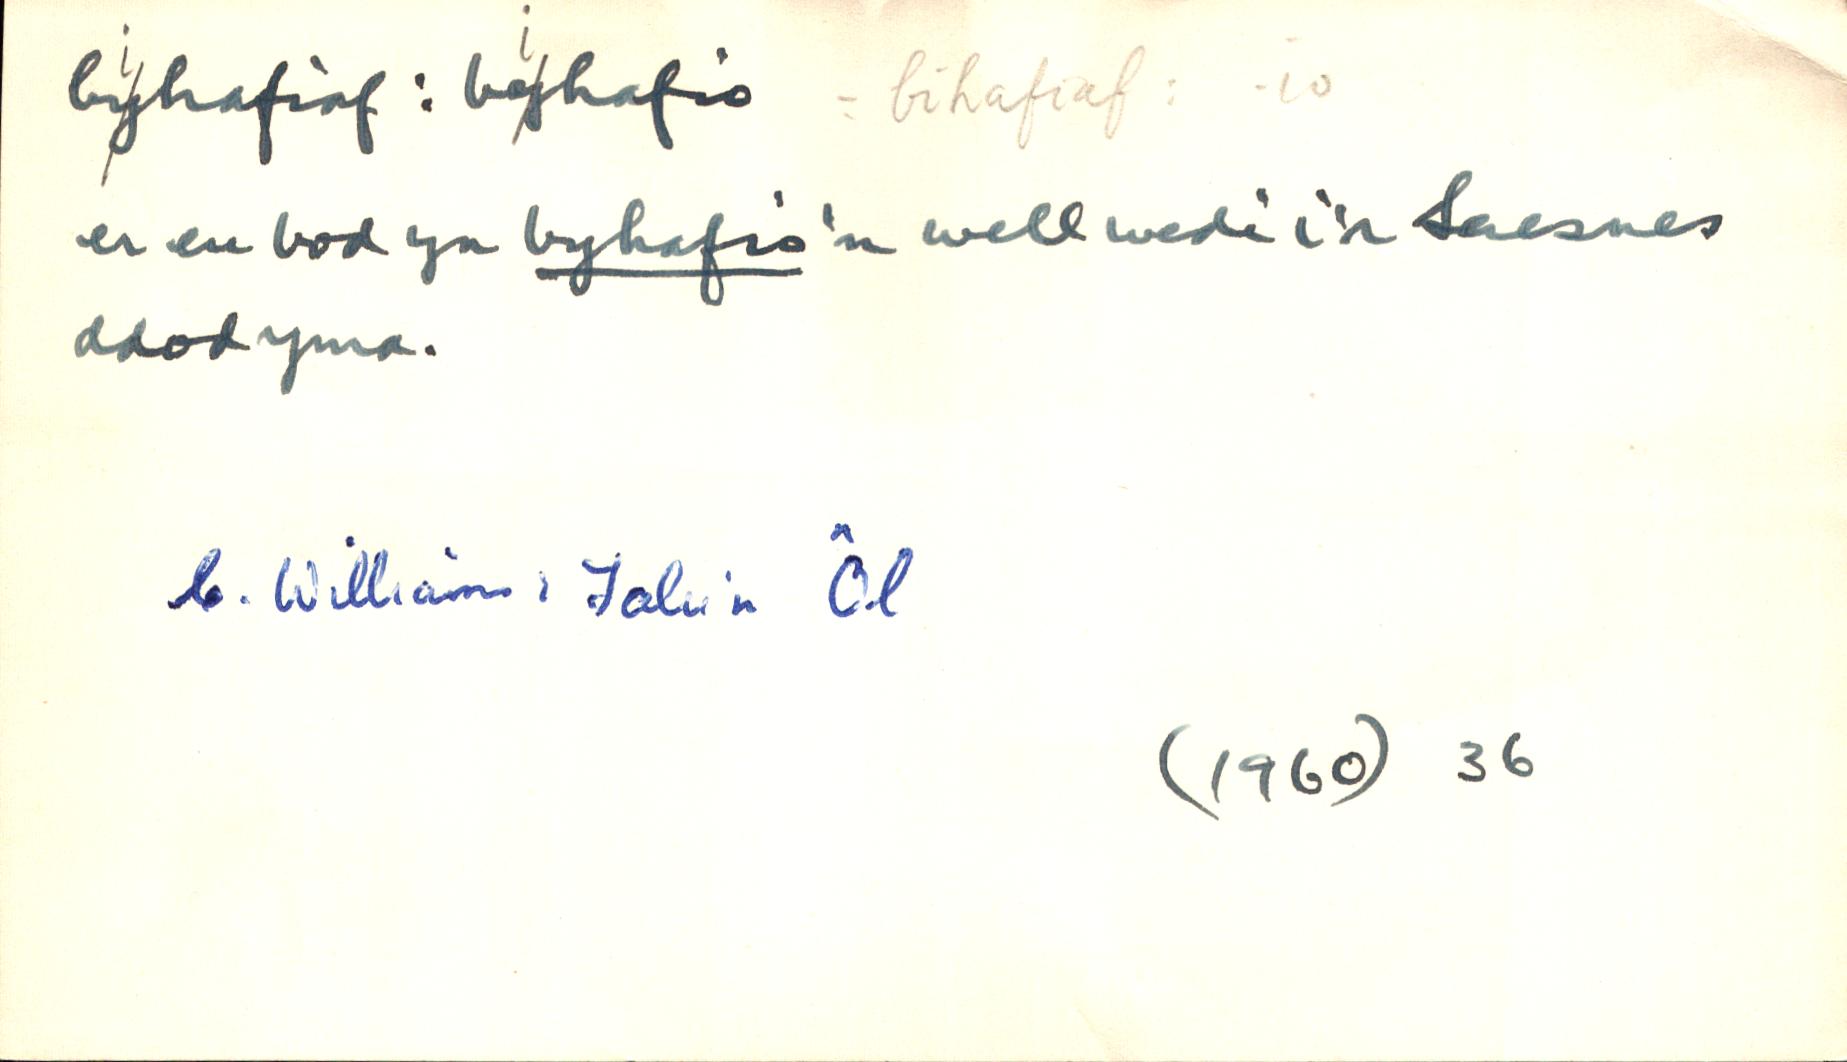 byhafiaf : byhafio = bihafiaf : -io
er eu bod yn byhafio'n well wedi i'r Saesnes
ddod yma.
C. Williams : Talu'n Ôl
(1960) 36